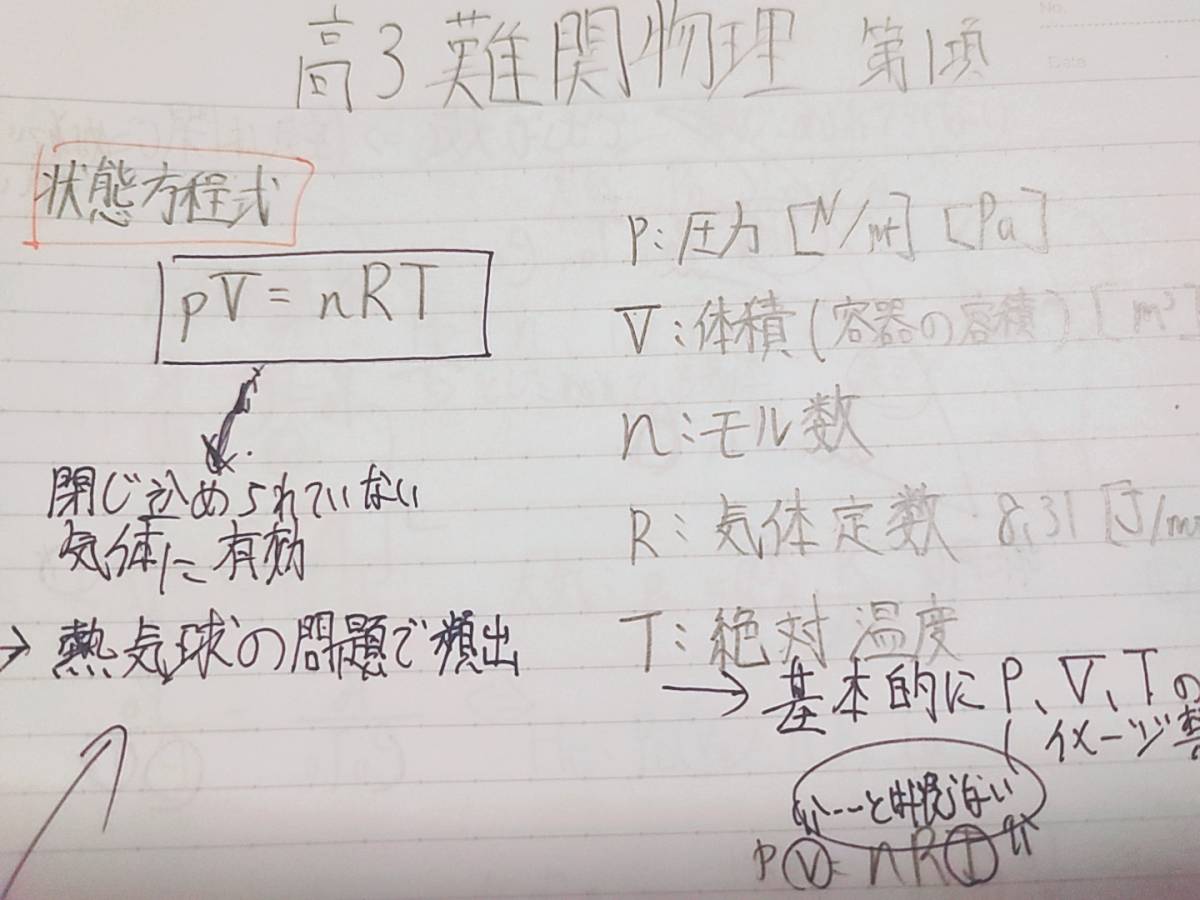 高3難関物理 第1項
状態方程式
pV = nRT
閉じ込められていない
気体に有効
→ 熱気球の問題で頻出
P:圧力 [N/㎡] [Pa]
V:体積(容器の容積) [m³]
n:モル数
R:気体定数 8.31 [J/m
T:絶対温度
→ 基本的にP、V、Tの
イメージ
pV = nRT